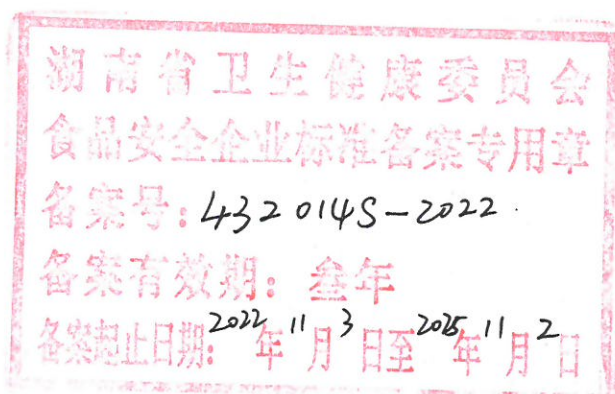 湖南省卫生健康委员会
食品安全企业标准备案专用章
备案号：432014S-2022
备案有效期：叁年
备案起止日期：2022年11月3日至2025年11月2日